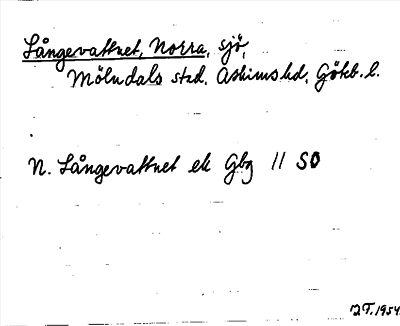 Långevattnet, Norra, sjö,
Mölndals stad, Askims hd, Göteb. l.
N. Långevattnet ek Gbg 11 SO
1954